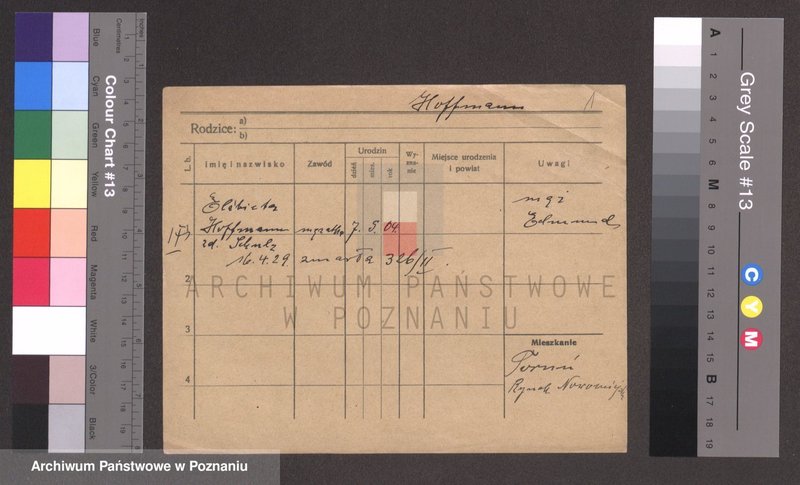 Hoffmann
1
Rodzice: a)
b)
L. b.
imię i nazwisko
Zawód
Urodzin
dzień
mies.
rok
Wy-
zna-
nie
Miejsce urodzenia
i powiat
Uwagi
Elżbieta
Hoffmann
zd. Schulz
mężatka 7. 9. 04.
mąż
Edmund
16.4.29 zmarła 326/II.
2
3
4
Mieszkanie
Toruń
Rynek
ARCHIWUM PAŃSTWOWE
W POZNANIU
Archiwum Państwowe w Poznaniu
Colour Chart #13
Blue
Cyan
Green
Yellow
Red
Magenta
White
3/Color
Black
Centimetres
Inches
Grey Scale #13
A
1
2
3
4
5
6
M
8
9
10
11
12
13
14
15
B
17
18
19
C
Y
M